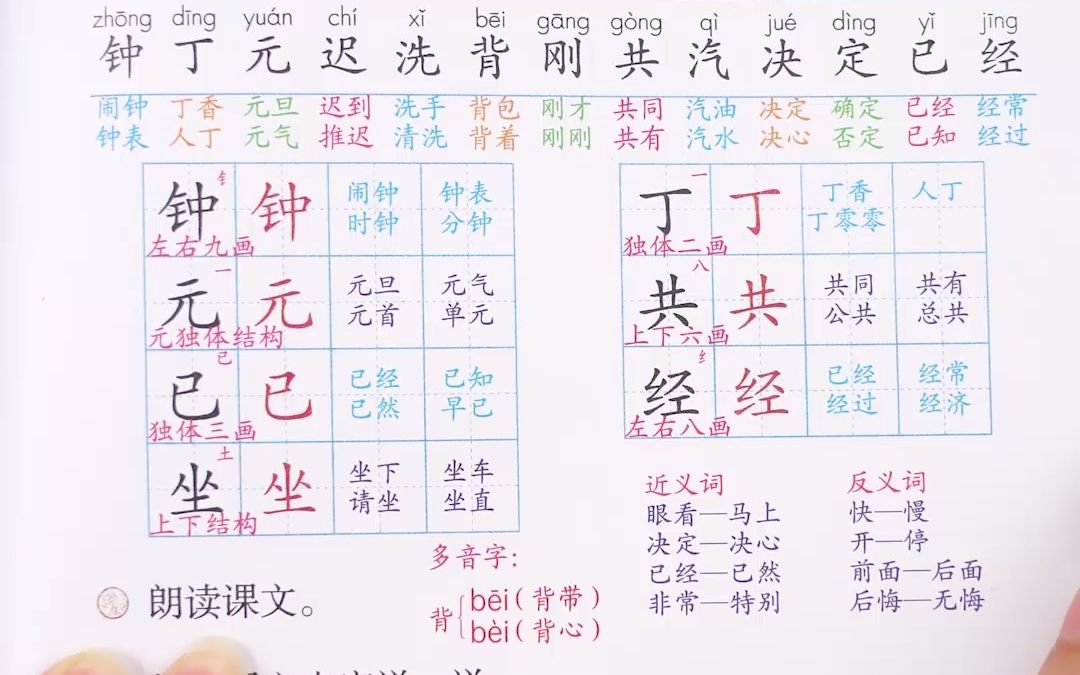 zhōng dīng yuán chí xǐ bēi gāng gòng qì jué dìng yǐ jīng
钟 丁 元 迟 洗 背 刚 共 汽 决 定 已 经
闹钟 丁香 元旦 迟到 洗手 背包 刚才 共同 汽油 决定 确定 已经 经常
钟表 人丁 元气 推迟 清洗 背着 刚刚 共有 汽水 决心 否定 已知 经过
钟 钅 钟 闹钟 钟表
时钟 分钟
左右九画
元 一 元 元旦 元气
元首 单元
元独体结构
已 已 已 已经 已知
已然 早已
独体三画
坐 土 坐 坐下 坐车
请坐 坐直
上下结构
丁 一 丁 丁香 人丁
丁零零
独体二画
共 八 共 共同 共有
公共 总共
上下六画
经 纟 经 已经 经常
经过 经济
左右八画
多音字:
背 bēi(背带)
bèi(背心)
近义词
眼看—马上
决定—决心
已经—已然
非常—特别
反义词
快—慢
开—停
前面—后面
后悔—无悔
朗读课文。